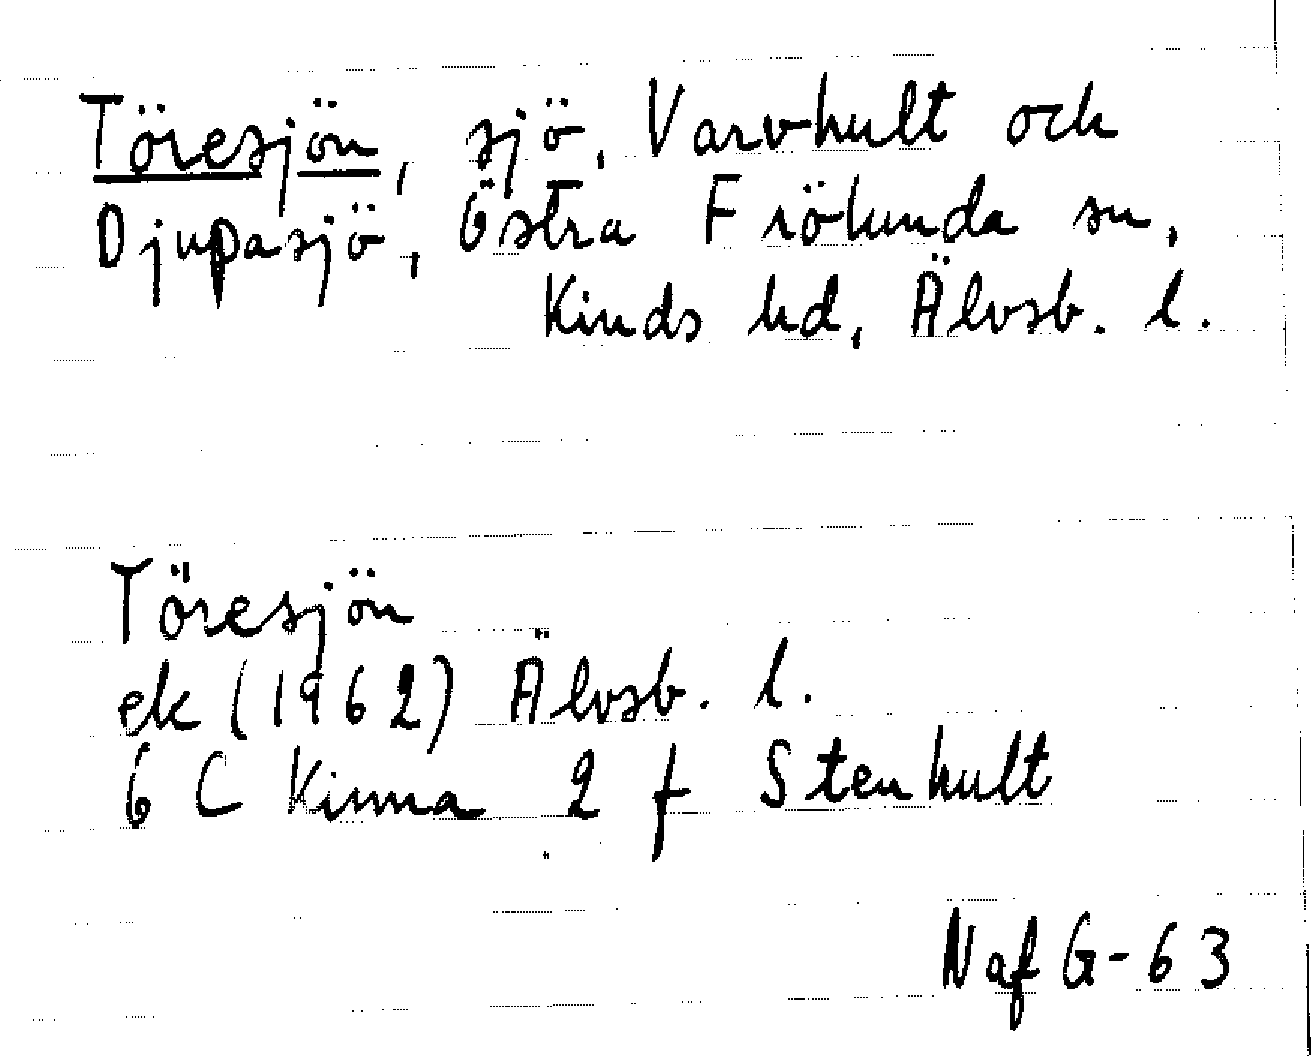 Töresjön, sjö, Varvhult och
Djupasjö, Östra Frölunda sn,
Kinds hd, Älvsb. l.
Töresjön
ek (1962) Älvsb. l.
6 C Kinna 2 f Stenhult
Naf G-63